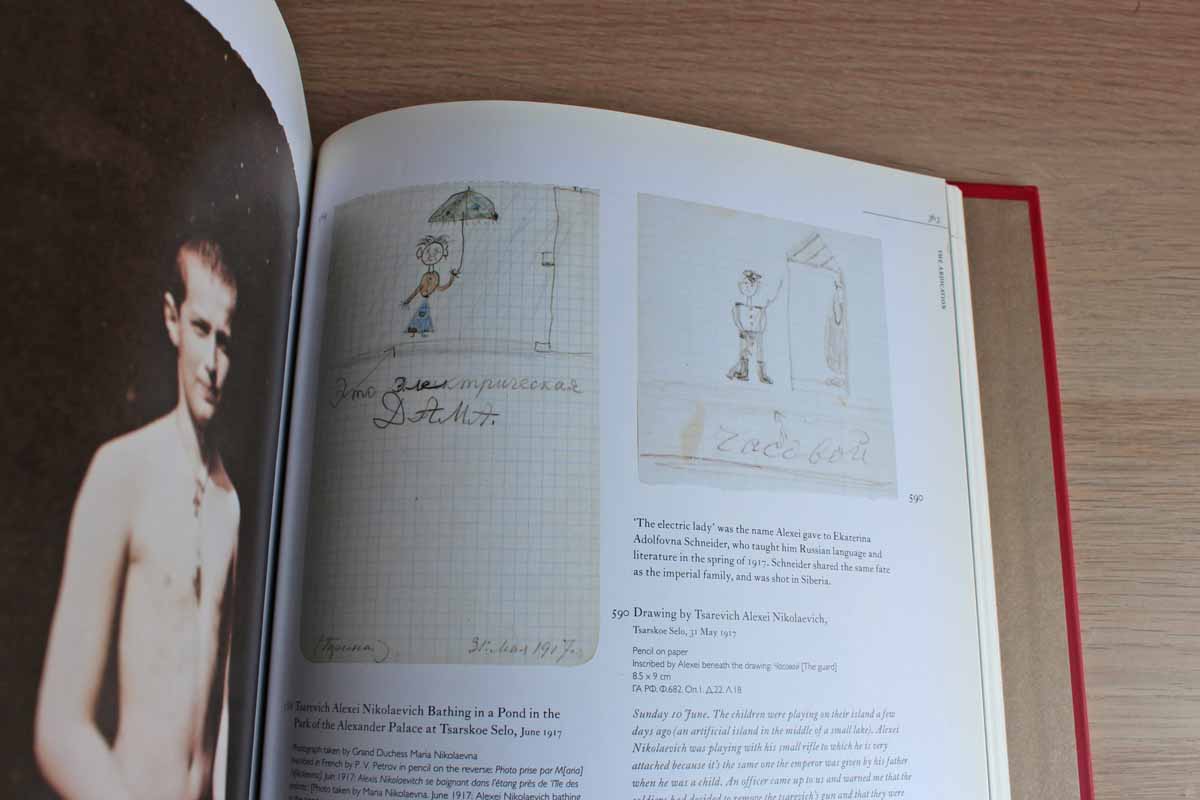 Это электрическая
ДАМА.
31. Мая 1917 г.
Tsarevich Alexei Nikolaevich Bathing in a Pond in the
Park of the Alexander Palace at Tsarskoe Selo, June 1917
Photograph taken by Grand Duchess Maria Nikolaevna
Inscribed in French by P. V. Petrov in pencil on the reverse: Photo prise par M[aria]
Nikolaevna] Juin 1917: Alexis Nikolaevitch se baignant dans l'étang près de l'île des
[Photo taken by Maria Nikolaevna, June 1917: Alexei Nikolaevich bathing
THE ABDICATION
часовой
590
'The electric lady' was the name Alexei gave to Ekaterina
Adolfovna Schneider, who taught him Russian language and
literature in the spring of 1917. Schneider shared the same fate
as the imperial family, and was shot in Siberia.
590 Drawing by Tsarevich Alexei Nikolaevich,
Tsarskoe Selo, 31 May 1917
Pencil on paper
Inscribed by Alexei beneath the drawing: Часовой [The guard]
8.5 x 9 cm
ГА РФ. Ф.682. Оп.1. Д.22. Л.18
Sunday 10 June. The children were playing on their island a few
days ago (an artificial island in the middle of a small lake). Alexei
Nikolaevich was playing with his small rifle to which he is very
attached because it's the same one the emperor was given by his father
when he was a child. An officer came up to us and warned me that the
soldiers had decided to remove the tsarevich's gun and that they were